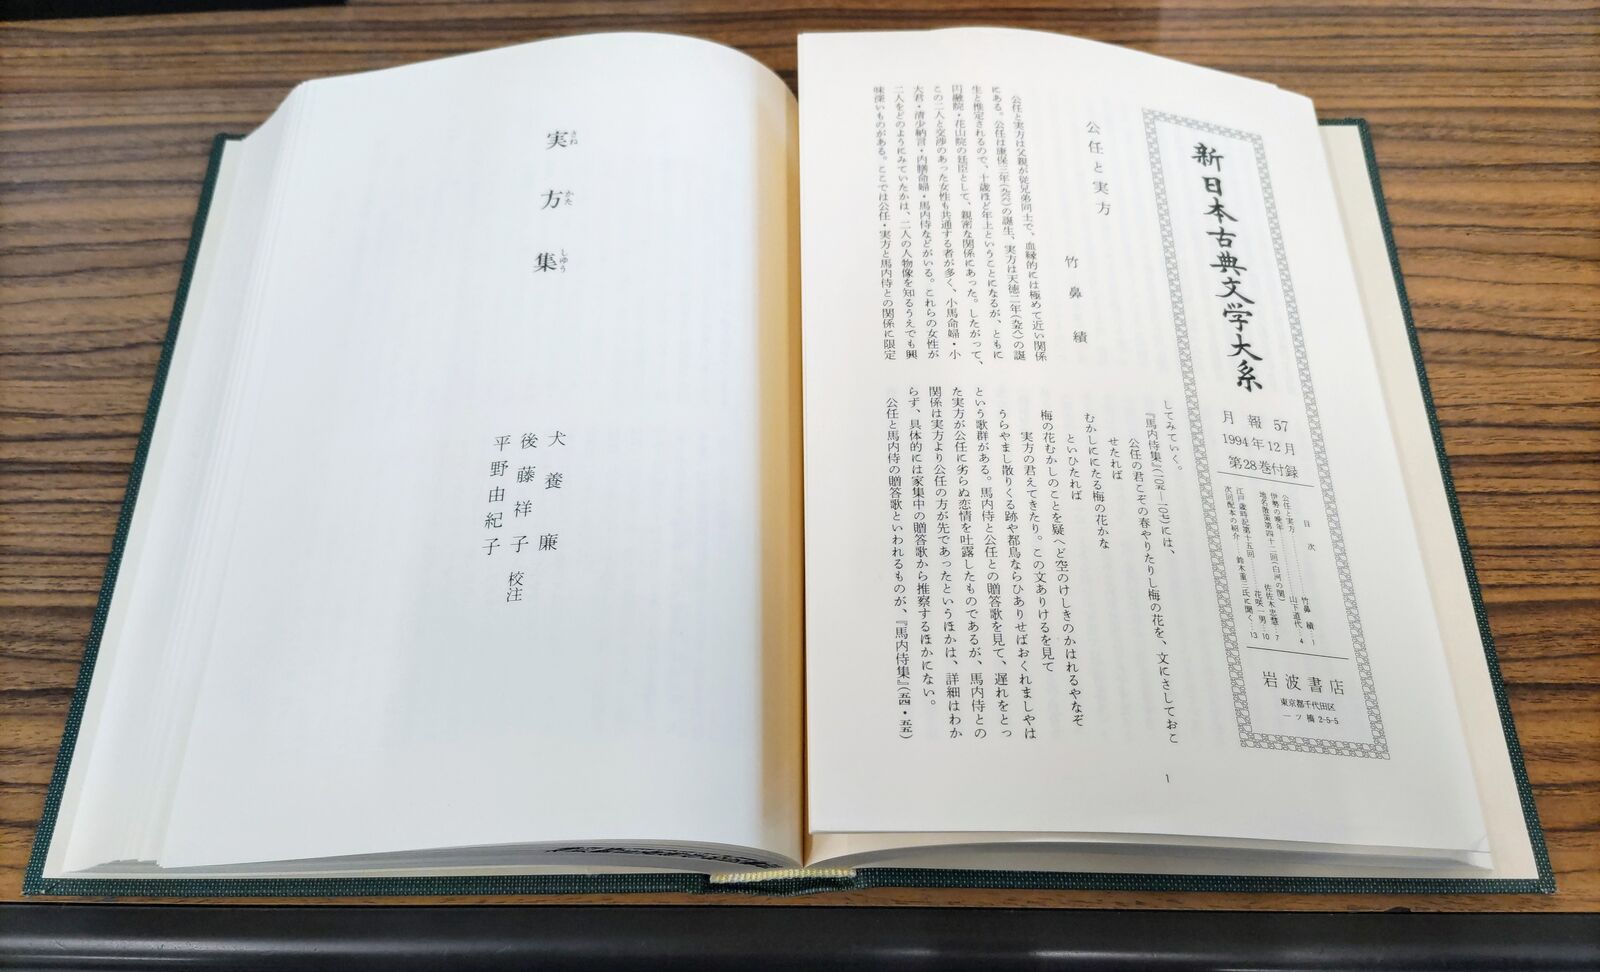 新日本古典文学大系
月報 57
1994年12月
第28巻付録
目次
公任と実方…………竹鼻 績…1
伊勢の晩年…………山下道代…4
地名散策第四十二回(白河の関)
佐佐木忠慧…7
江戸歳時記第十五回………花咲一男…10
次回配本の紹介 鈴木重三氏に聞く…13
岩波書店
東京都千代田区
一ッ橋 2-5-5
公任と実方
竹鼻 績
公任と実方は父親が従兄弟同士で、血縁的には極めて近い関係
にある。公任は康保三年(九六六)の誕生、実方は天徳二年(九五八)の誕
生と推定されるので、十歳ほど年上ということになるが、ともに
円融院・花山院の廷臣として、親密な関係にあった。したがって、
この二人と交渉のあった女性も共通する者が多く、小馬命婦・小
大君・清少納言・内膳命婦・馬内侍などがいる。これらの女性が
二人をどのようにみていたかは、二人の人物像を知るうえでも興
味深いものがある。ここでは公任・実方と馬内侍との関係に限定
してみていく。
『馬内侍集』(一〇五—一〇七)には、
公任の君こぞの春やりたりし梅の花を、文にさしておこ
せたれば
むかしににたる梅の花かな
といひたれば
梅の花むかしのことを疑へど空のけしきのかはれるやなぞ
実方の君えてきたり。この文ありけるを見て
うらやまし散りくる跡や都鳥ならひありせばおくれましやは
という歌群がある。馬内侍と公任との贈答歌を見て、遅れをとっ
た実方が公任に劣らぬ恋情を吐露したものであるが、馬内侍との
関係は実方より公任の方が先であったというほかは、詳細はわか
らず、具体的には家集中の贈答歌から推察するほかにない。
公任と馬内侍の贈答歌といわれるものが、『馬内侍集』(五四・五五)
1
実方集
さねかたしゆう
犬養 廉
後藤祥子 校注
平野由紀子